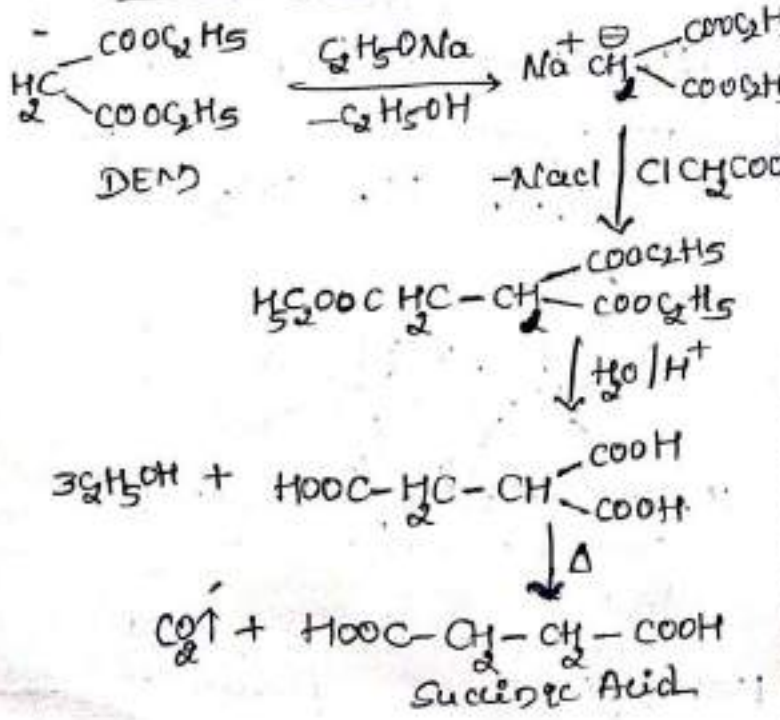 COOC₂H5
H₂C
COOC₂H5
DEM
C₂H5ONa
-C₂H5OH
Na⁺ ⊖CH₂
COOC₂H
COOC₂H
-NaCl ClCH₂COO
H5C₂OOC H₂C-CH₂
COOC₂H5
COOC₂H5
H₂O/H⁺
3C₂H5OH + HOOC-H₂C-CH
COOH
COOH
Δ
CO₂↑ + HOOC-CH₂-CH₂-COOH
Succinic Acid